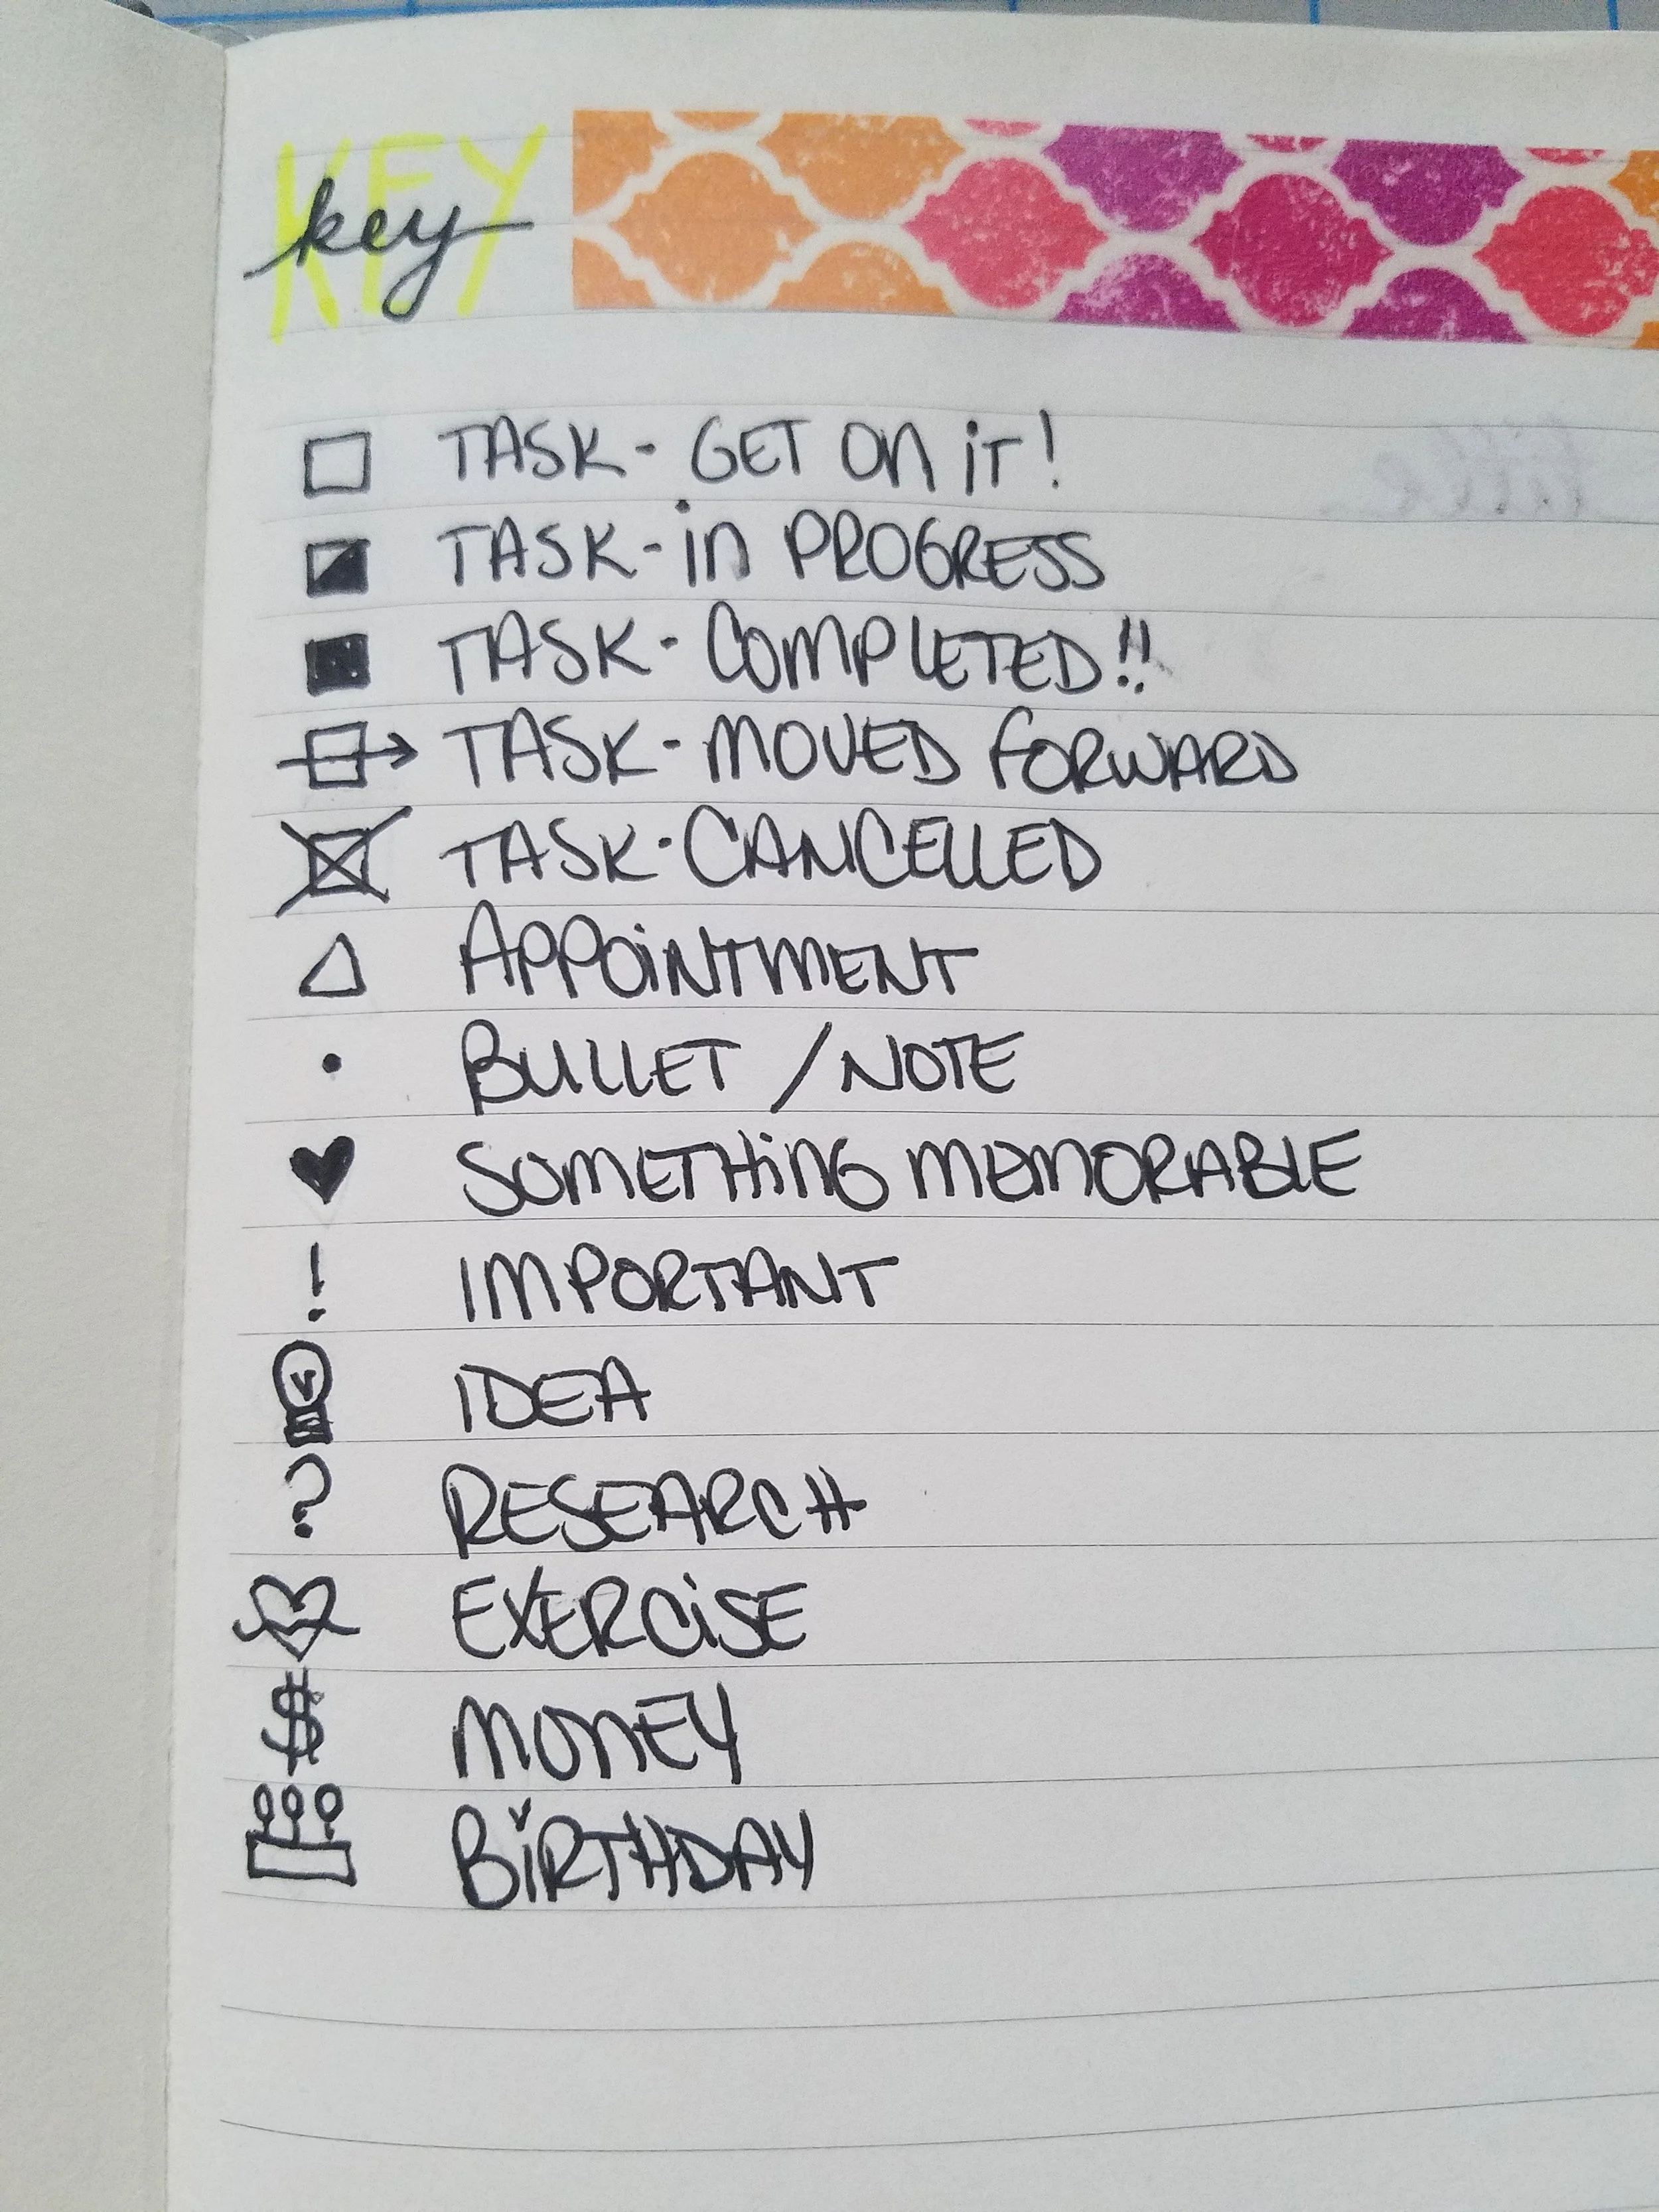 KEY
key
TASK- GET ON iT!
TASK- in PROGRESS
TASK- COMPLETED!!
TASK- MOVED FORWARD
TASK-CANCELLED
APPOiNTMENT
• BULLET / NOTE
SOMETHiNG MEMORABLE
! IMPORTANT
IDEA
? RESEARCH
EXERCiSE
$ MONEY
BiRTHDAY